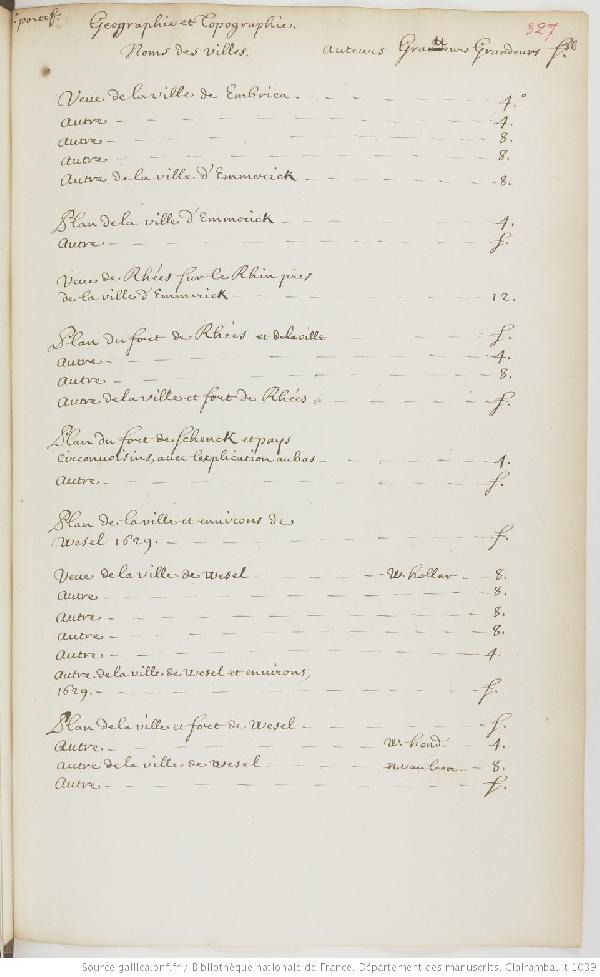 portef. Geographie et Topographie. 327
Noms des villes. Auteurs Grandeurs
Veue de la ville de Embrica. 4.°
Autre 4.
Autre 8.
Autre 8.
Autre de la ville d'Emmerick 8.
Plan de la ville d'Emmerick 4.
Autre f.
Veue de Rhées sur le Rhin pres
de la ville d'Emmerick 12.
Plan du fort de Rhées et de la ville f.
Autre 4.
Autre 8.
Autre de la ville et fort de Rhées f.
Plan du fort de Schenck et pays
circonvoisins, avec l'explication au bas 4.
Autre f.
Plan de la ville et environs de
Wesel 1629. f.
Veue de la ville de Wesel W. hollar 8.
Autre 8.
Autre 8.
Autre 8.
Autre 4.
Autre de la ville de Wesel et environs,
1629. f.
Plan de la ville et fort de Wesel f.
Autre W. hond. 4.
Autre de la ville de Wesel 8.
Autre f.
Source gallica.bnf.fr / Bibliothèque nationale de France. Département des manuscrits. Clairambault 1039